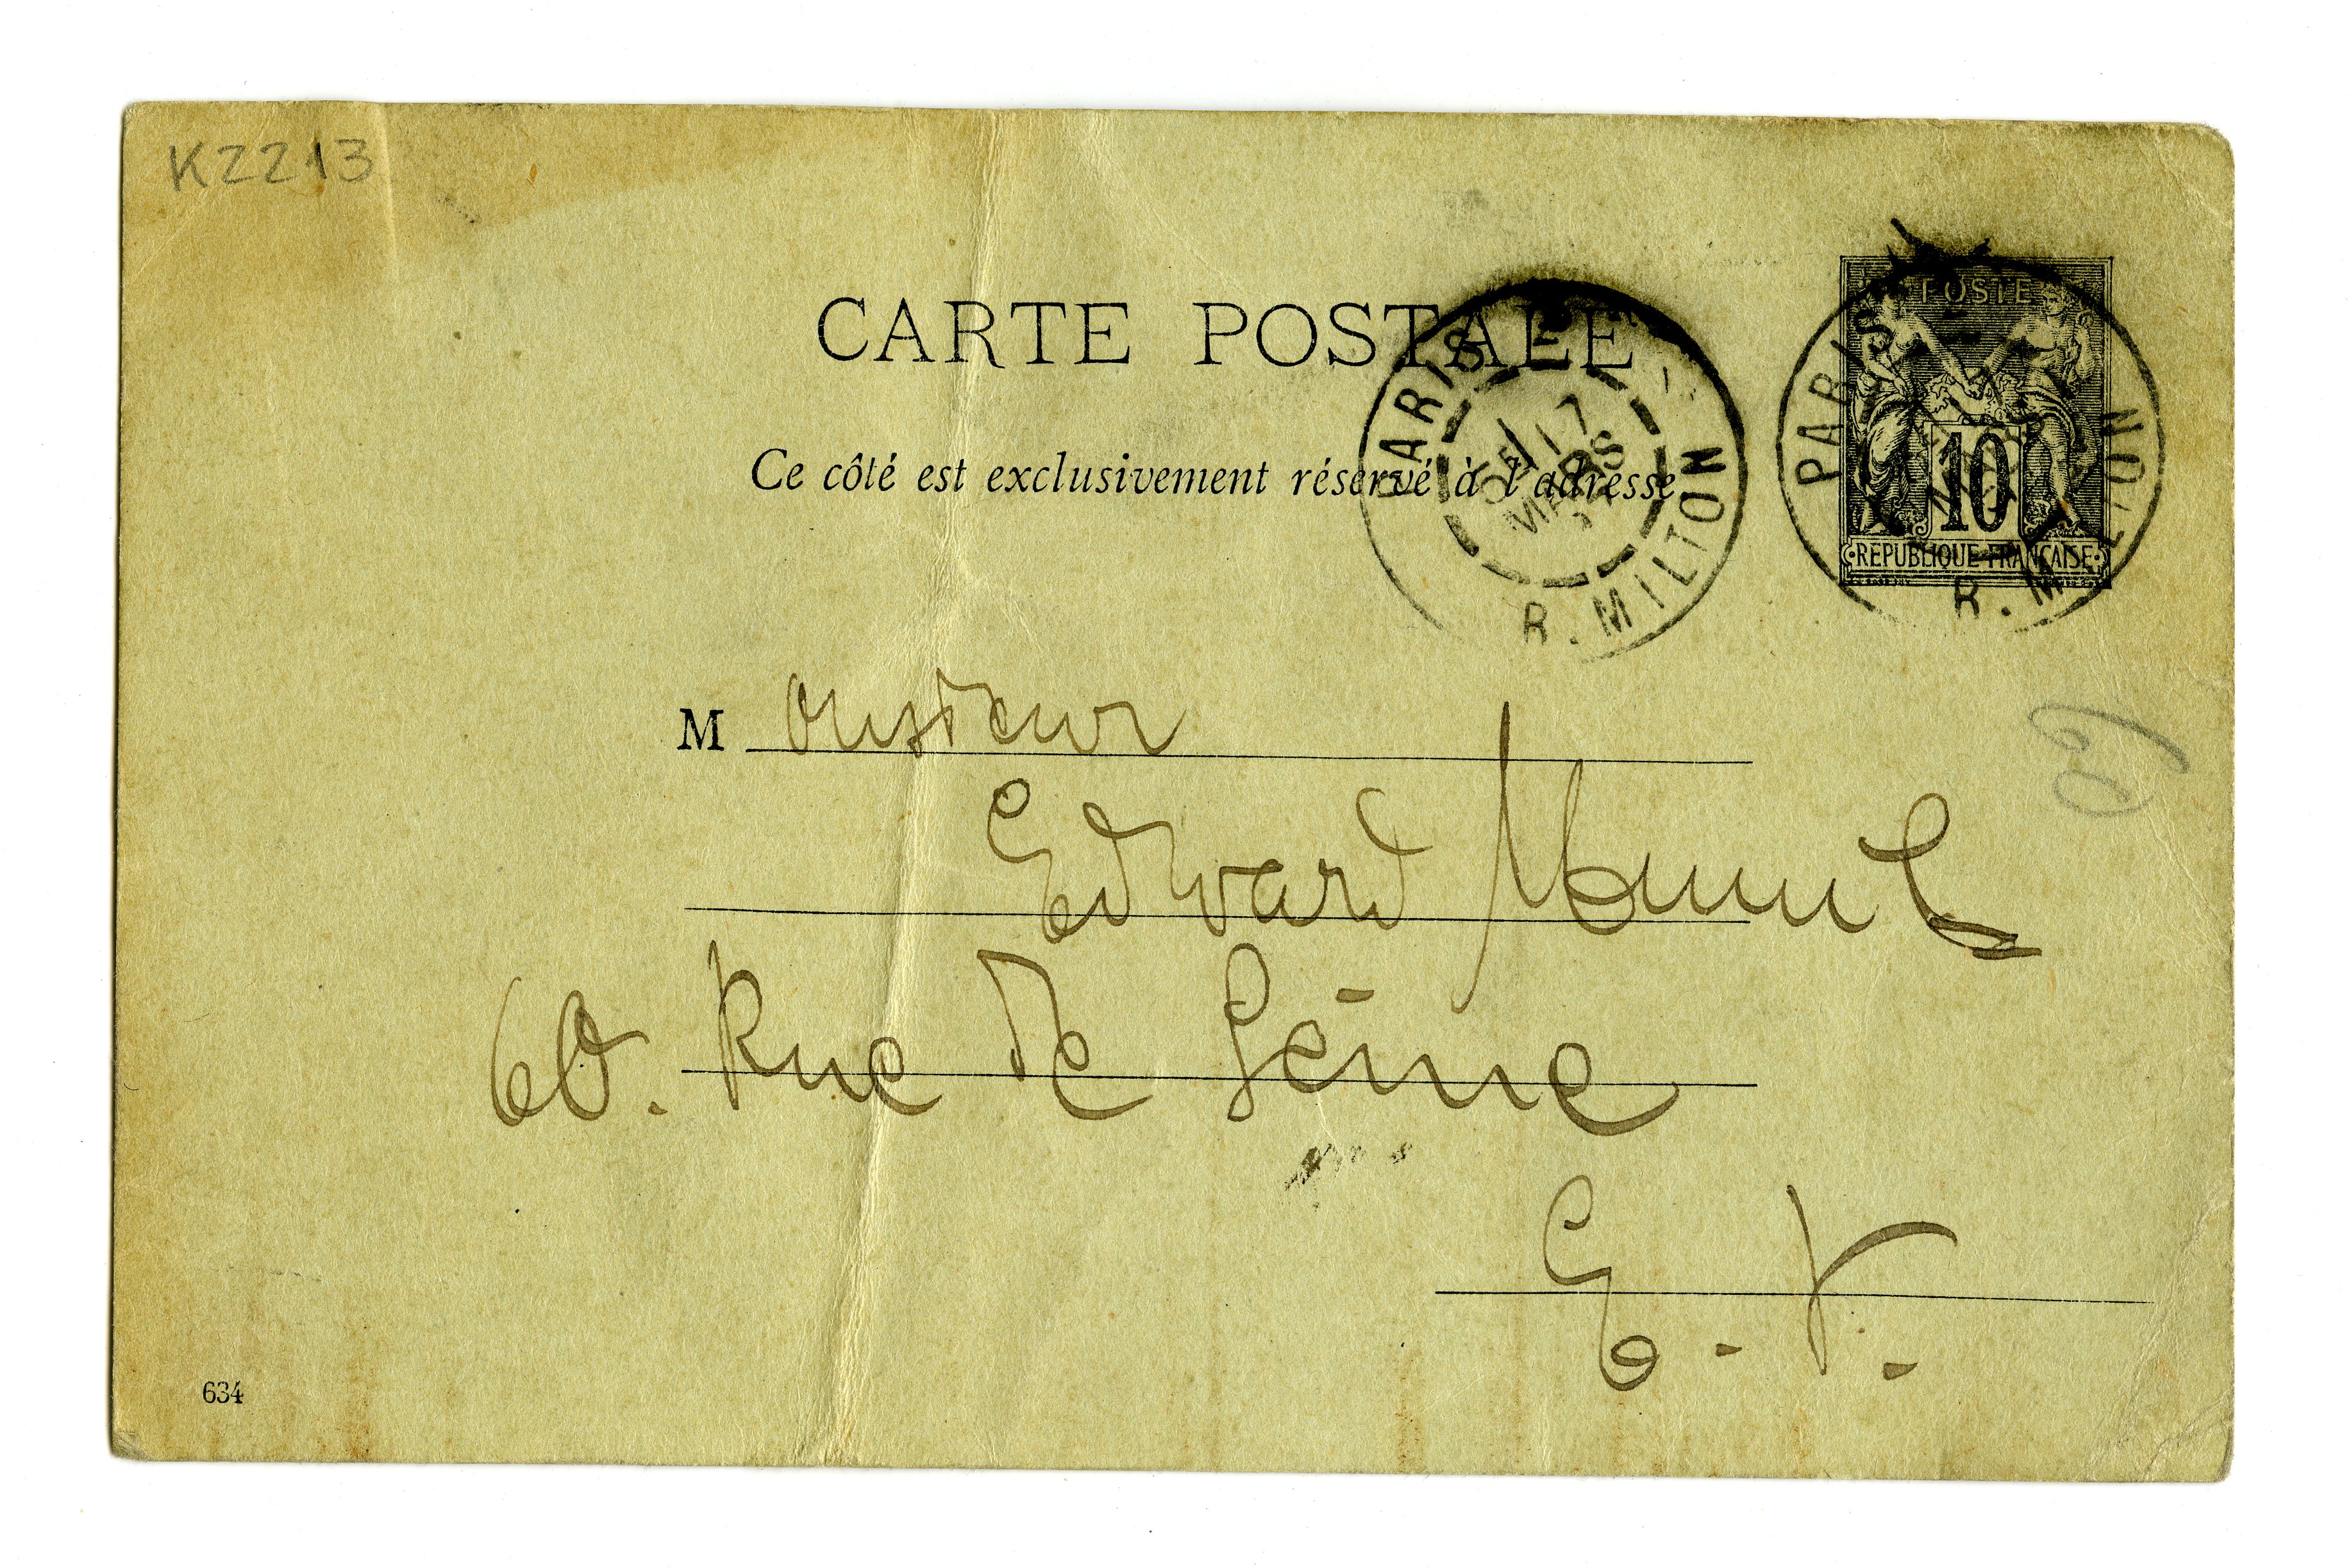 K2213
CARTE POSTALE
Ce côté est exclusivement réservé à l'adresse.
PARIS
17
MARS
R. MILTON
POSTE
10
RÉPUBLIQUE FRANÇAISE
PARIS
R. MILTON
Monsieur
Edvard Munch
60. Rue de Seine
E. V.
634